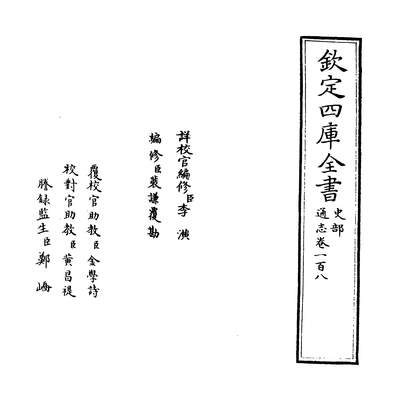 欽定四庫全書
史部
通志卷一百八
詳校官編修臣李潢
編修臣裴謙覆勘
覆校官助教臣金學詩
校對官助教臣黄昌禔
謄録監生臣鄭